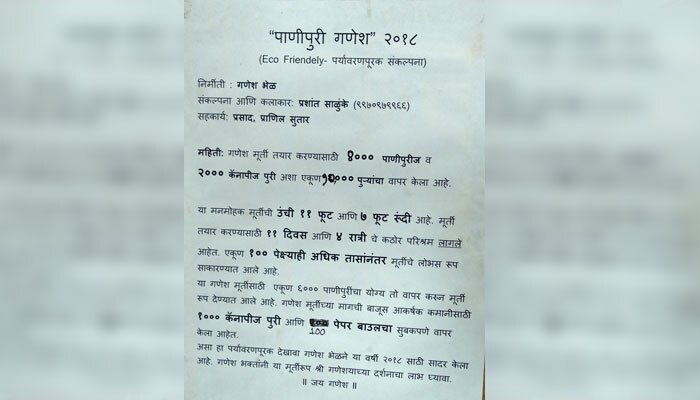 “पाणीपुरी गणेश” २०१८
(Eco Friendely- पर्यावरणपूरक संकल्पना)
निर्मीती : गणेश भेळ
संकल्पना आणि कलाकार: प्रशांत साळुंके (९९७०९७९९६६)
सहकार्य: प्रसाद, प्राणिल सुतार
महिती: गणेश मूर्ती तयार करण्यासाठी ४००० पाणीपुरीज व
२००० कॅनापीज पुरी अशा एकूण १०,००० पुऱ्यांचा वापर केला आहे.
या मनमोहक मूर्तीची उंची ११ फूट आणि ७ फूट रुंदी आहे. मूर्ती
तयार करण्यासाठी ११ दिवस आणि ४ रात्री चे कठोर परिश्रम लागले
आहेत. एकूण १०० पेक्ष्याही अधिक तासांनंतर मूर्तीचे लोभस रूप
साकारण्यात आले आहे.
या गणेश मूर्तीसाठी एकूण ६००० पाणीपुरींचा योग्य तो वापर करून मूर्ती
रूप देण्यात आले आहे. गणेश मूर्तीच्या मागची बाजूस आकर्षक कमानीसाठी
१००० कॅनापीज पुरी आणि 100 पेपर बाउलचा सुबकपणे वापर
केला आहेत.
असा हा पर्यावरणपूरक देखावा गणेश भेळने या वर्षी २०१८ साठी सादर केला
आहे. गणेश भक्तांनी या मूर्तीरूप श्री गणेशयाच्या दर्शनाचा लाभ घ्यावा.
॥ जय गणेश ॥